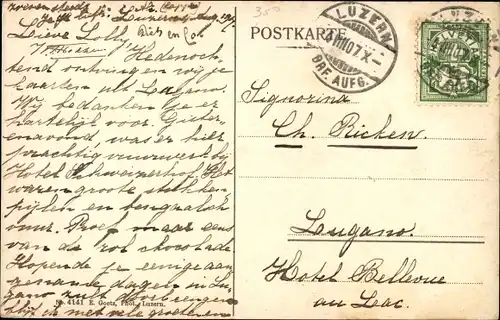 Luzern
Lieve Lolly
Hedenoch-
tend ontvingen wij je
kaarten uit Lugano.
Wij bedanken je er
hartelijk voor. Gister-
enavond was er hier
prachtig vuurwerk bij
Hotel Schweizerhof. Het
waren groote stukken
pijlen en bengaalsch
vuur. Proef maar eens
van de rol chocolade
Hopende je eenige aan
gename dagen in Lu
gano zult
met vele groeten en
No. 4141 E. Goetz, Phot., Luzern.
350
POSTKARTE.
LUZERN
VIII 07 X
BRF. AUFG.
HELVETIA
Signorina
Ch. Ricken
Lugano.
Hotel Bellevue
au Lac.